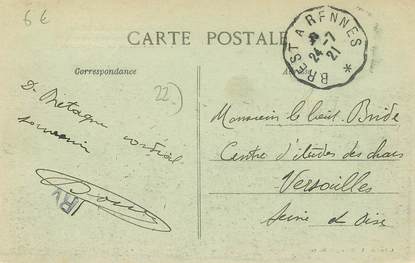 6 €
CARTE POSTALE
BREST A RENNES
24-7
21
Correspondance
22-)
De Bretagne cordial
souvenir
RV
Monsieur le lieut. Bride
Centre d'études des chars
Versailles
Seine et Oise